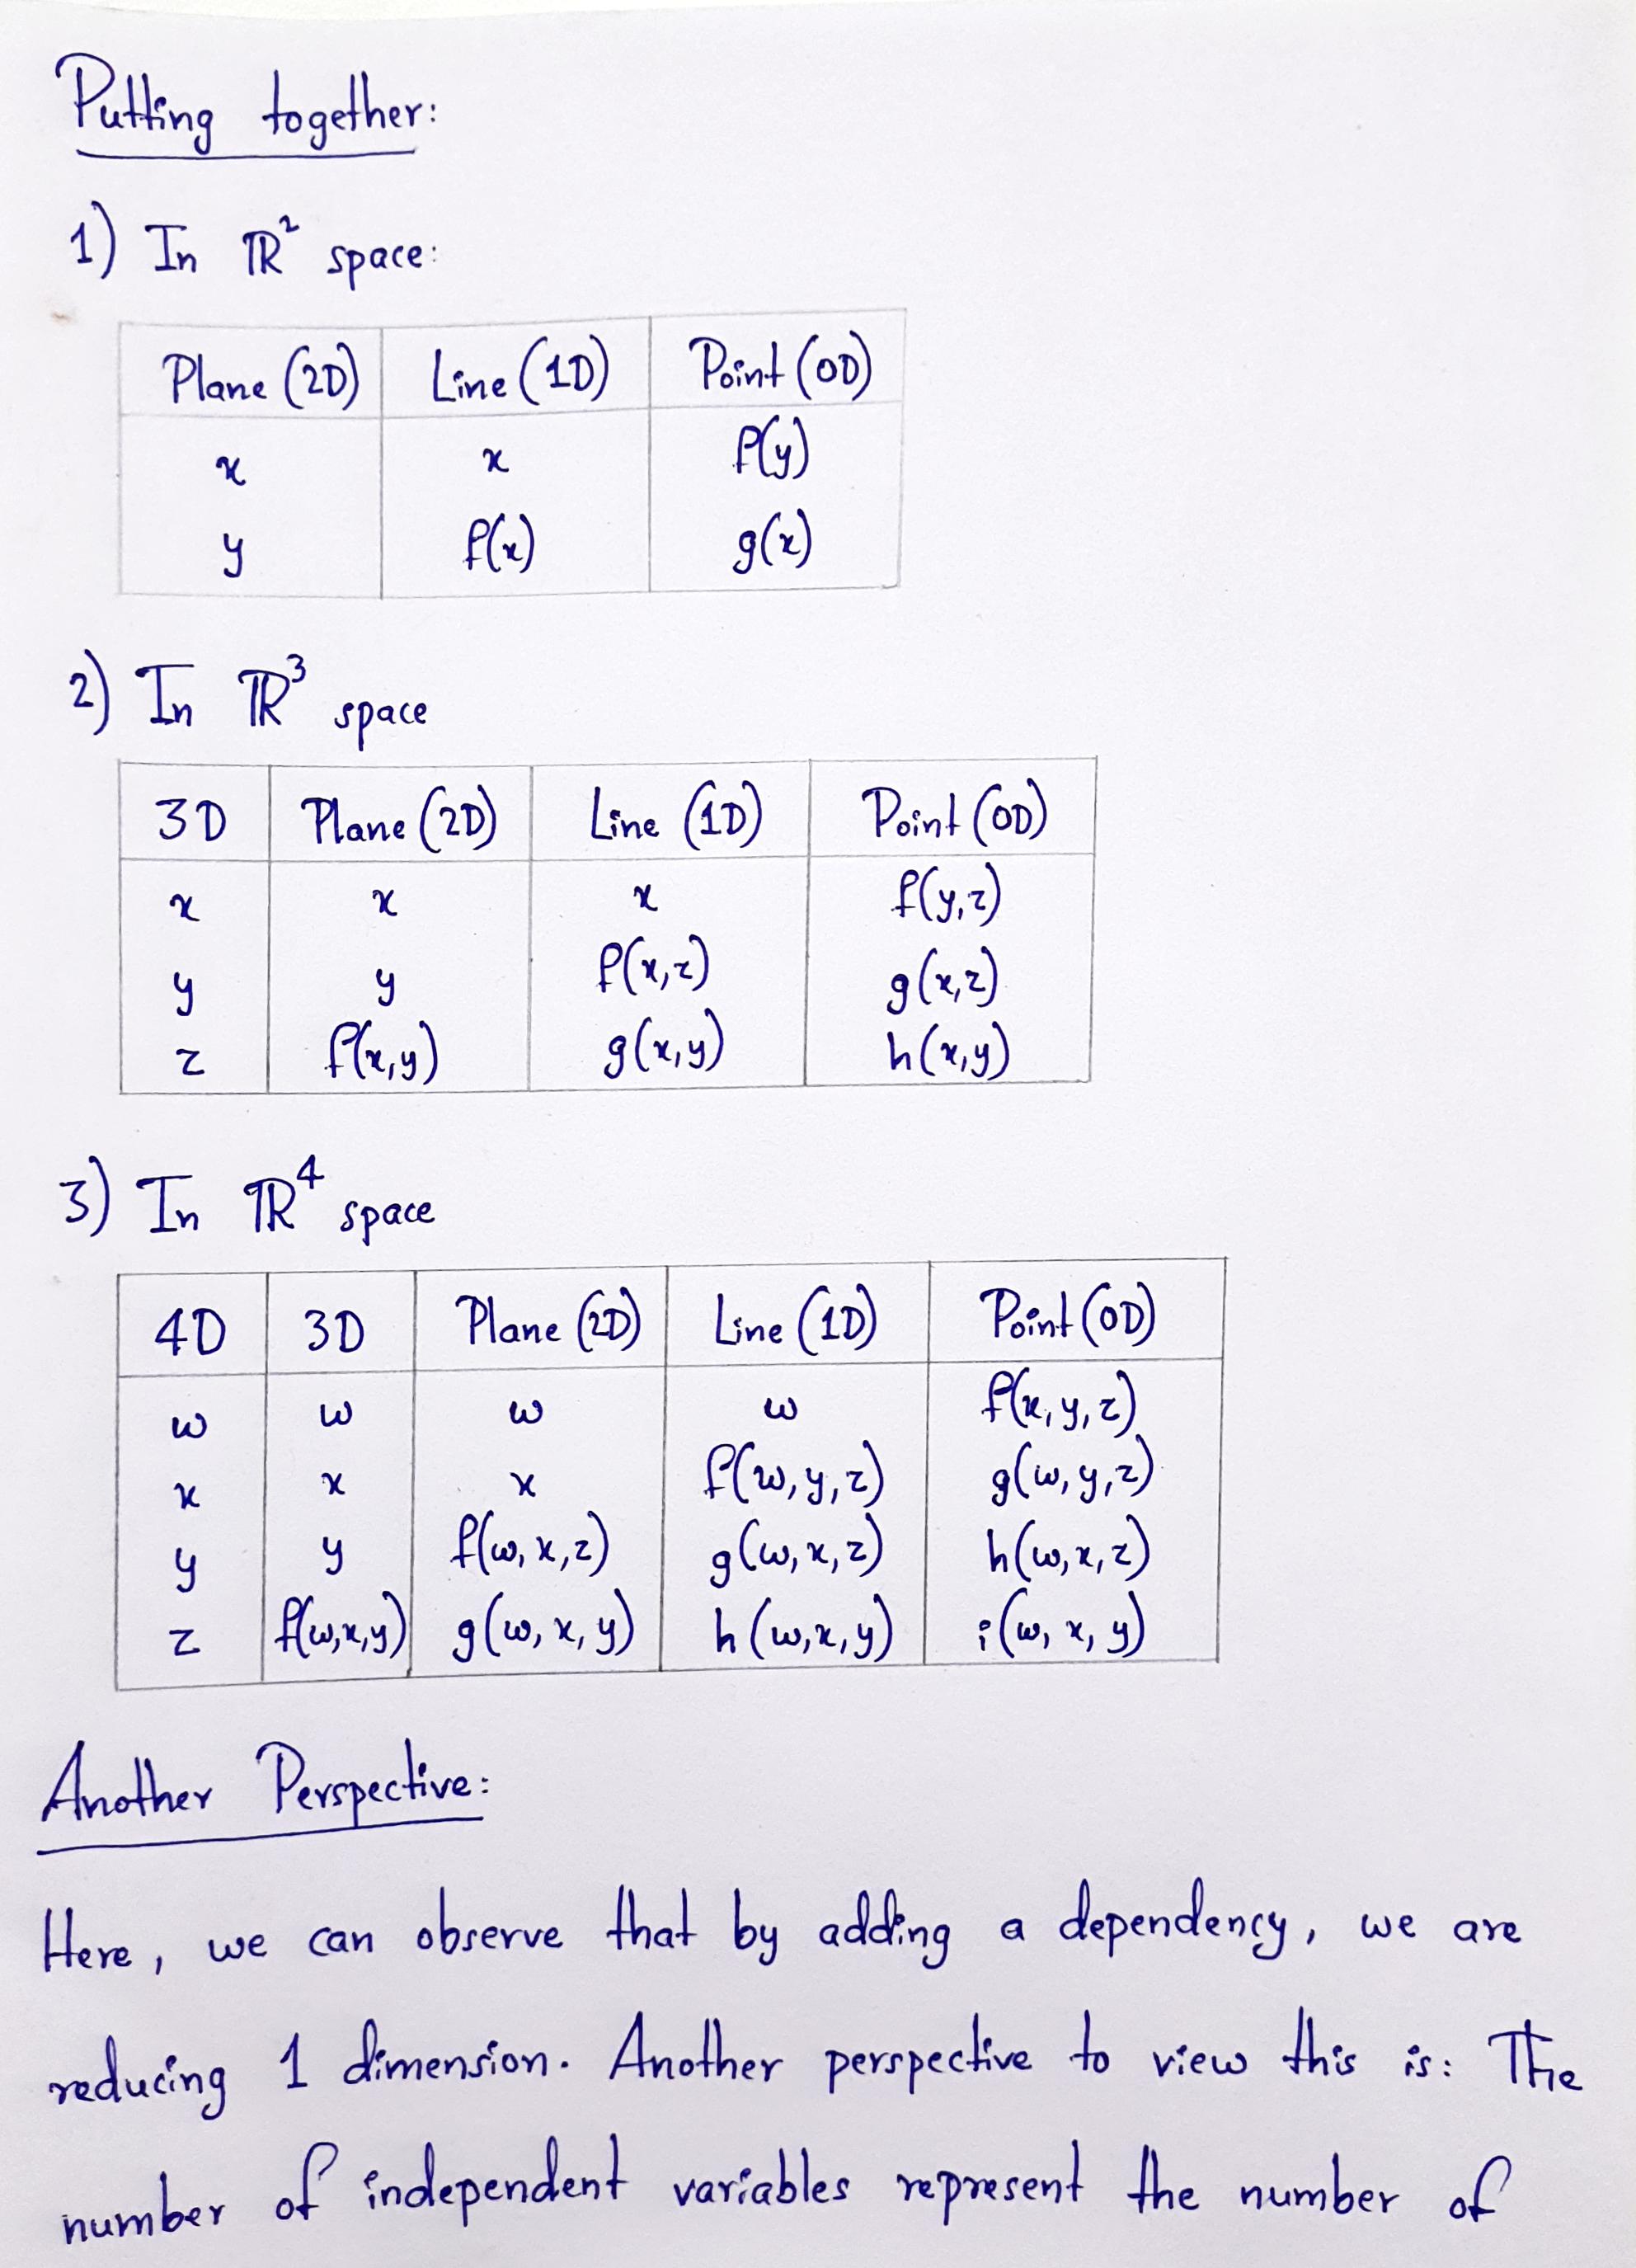 Putting together:
1) In ℝ² space:
Plane (2D) Line (1D) Point (0D)
x x f(y)
y f(x) g(x)
2) In ℝ³ space
3D Plane (2D) Line (1D) Point (0D)
x x x f(y,z)
y y f(x,z) g(x,z)
z f(x,y) g(x,y) h(x,y)
3) In ℝ⁴ space
4D 3D Plane (2D) Line (1D) Point (0D)
w w w w f(x,y,z)
x x x f(w,y,z) g(w,y,z)
y y f(w,x,z) g(w,x,z) h(w,x,z)
z f(w,x,y) g(w,x,y) h(w,x,y) i(w,x,y)
Another Perspective:
Here, we can observe that by adding a dependency, we are
reducing 1 dimension. Another perspective to view this is: The
number of independent variables represent the number of